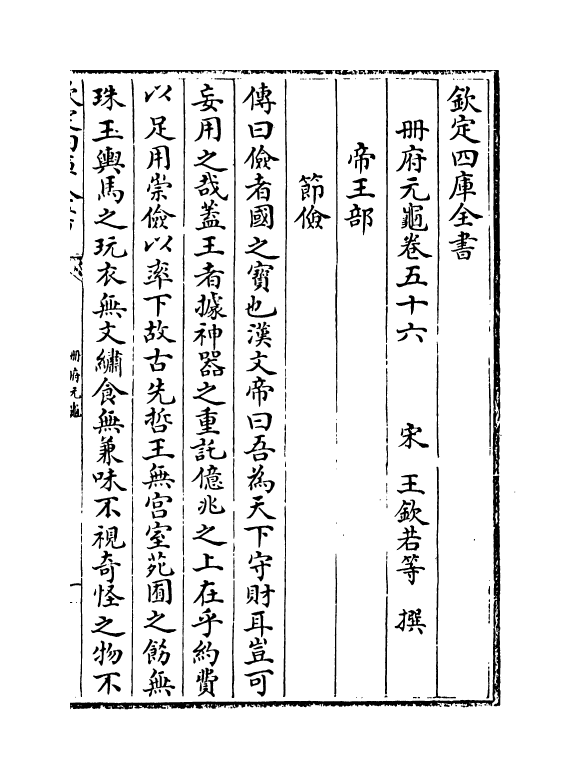 欽定四庫全書
冊府元龜卷五十六　宋　王欽若等　撰
帝王部
節儉
傳曰儉者國之寳也漢文帝曰吾為天下守財耳豈可
妄用之哉蓋王者據神器之重託億兆之上在乎約費
以足用崇儉以率下故古先哲王無宫室苑囿之飾無
珠玉輿馬之玩衣無文繡食無兼味不視奇怪之物不
冊府元龜
一